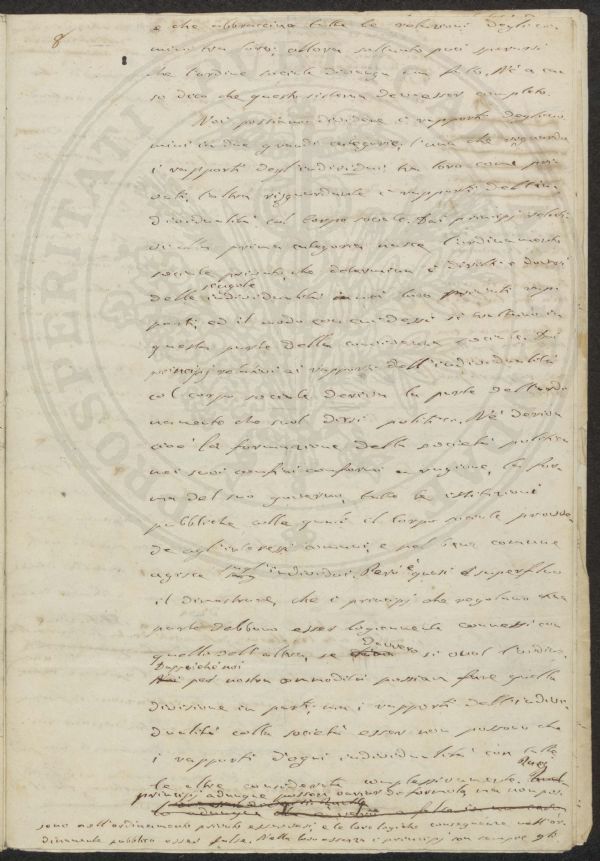 8
e che abbraccino tutte le relazioni degli uo-
mini tra loro; allora soltanto può sperarsi
che l'ordine sociale divenga un fatto. Nè a ca-
so dico che questo sistema dev'esser completo.
Noi possiamo dividere i rapporti degli uo-
mini in due grandi categorie, l'una che risguarda
i rapporti degl'individui tra loro come pri-
vati, l'altra risguardante i rapporti dell'in-
dividualità col corpo sociale. Dai principj relati-
vi alla prima categoria nasce l'ordinamento
sociale privato, che determina i diritti e doveri
delle singole individualità nei loro privati rap-
porti, ed il modo con cui dessi si trattano in
questa parte della convivenza sociale. Dai
principj relativi ai rapporti dell'individualità
col corpo sociale deriva la parte dell'ordi-
namento che suol dirsi politico. Ne deriva
cioè la formazione della società politica
nei suoi confini conformi a ragione, la for-
ma del suo governo, tutte le istituzioni
pubbliche colle quali il corpo sociale provve-
de agl'interessi comuni, e pel bene comune
agisce sugl'individui. Però è quasi superfluo
il dimostrare, che i principj che regolano una
parte debbono esser logicamente connessi con
quelli dell'altra, se davvero si vuol l'ordine.
Dappoichè noi
per nostra commodità possiam fare quella
divisione in parti, ma i rapporti dell'indivi-
dualità colla società esser non possono che
i rapporti d'ogni individualità con tutte
le altre considerate complessivamente. Quei
principj adunque possono variar di formola, ma non pos-
sono nell'ordinamento privato esser veri, e le loro logiche conseguenze nell'or-
dinamento pubblico esser false. Nella loro essenza i principj son sempre gli